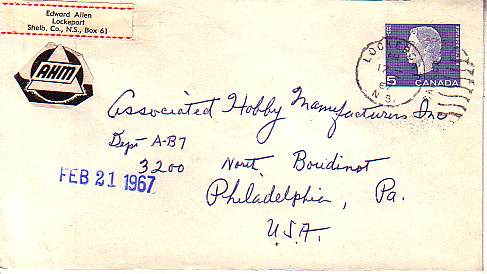 Edward Allen
Lockeport
Shelb. Co., N.S., Box 61
AHM
5
CANADA
N.S.
Associated Hobby Manufacturers Inc
Dept A-B7
3200 North Boudinot
FEB 21 1967
Philadelphia, Pa.
U.S.A.